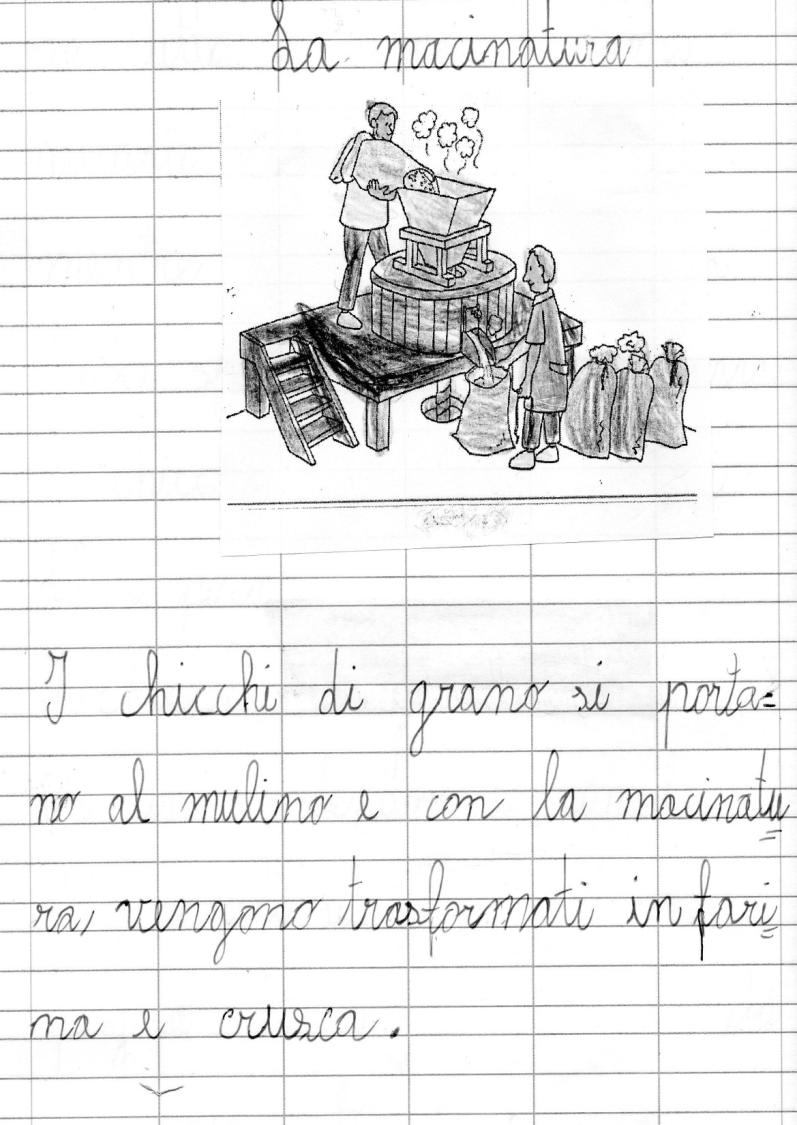 La macinatura
I chicchi di grano si porta=
no al mulino e con la macinatu=
ra, vengono trasformati in fari=
na e crusca.